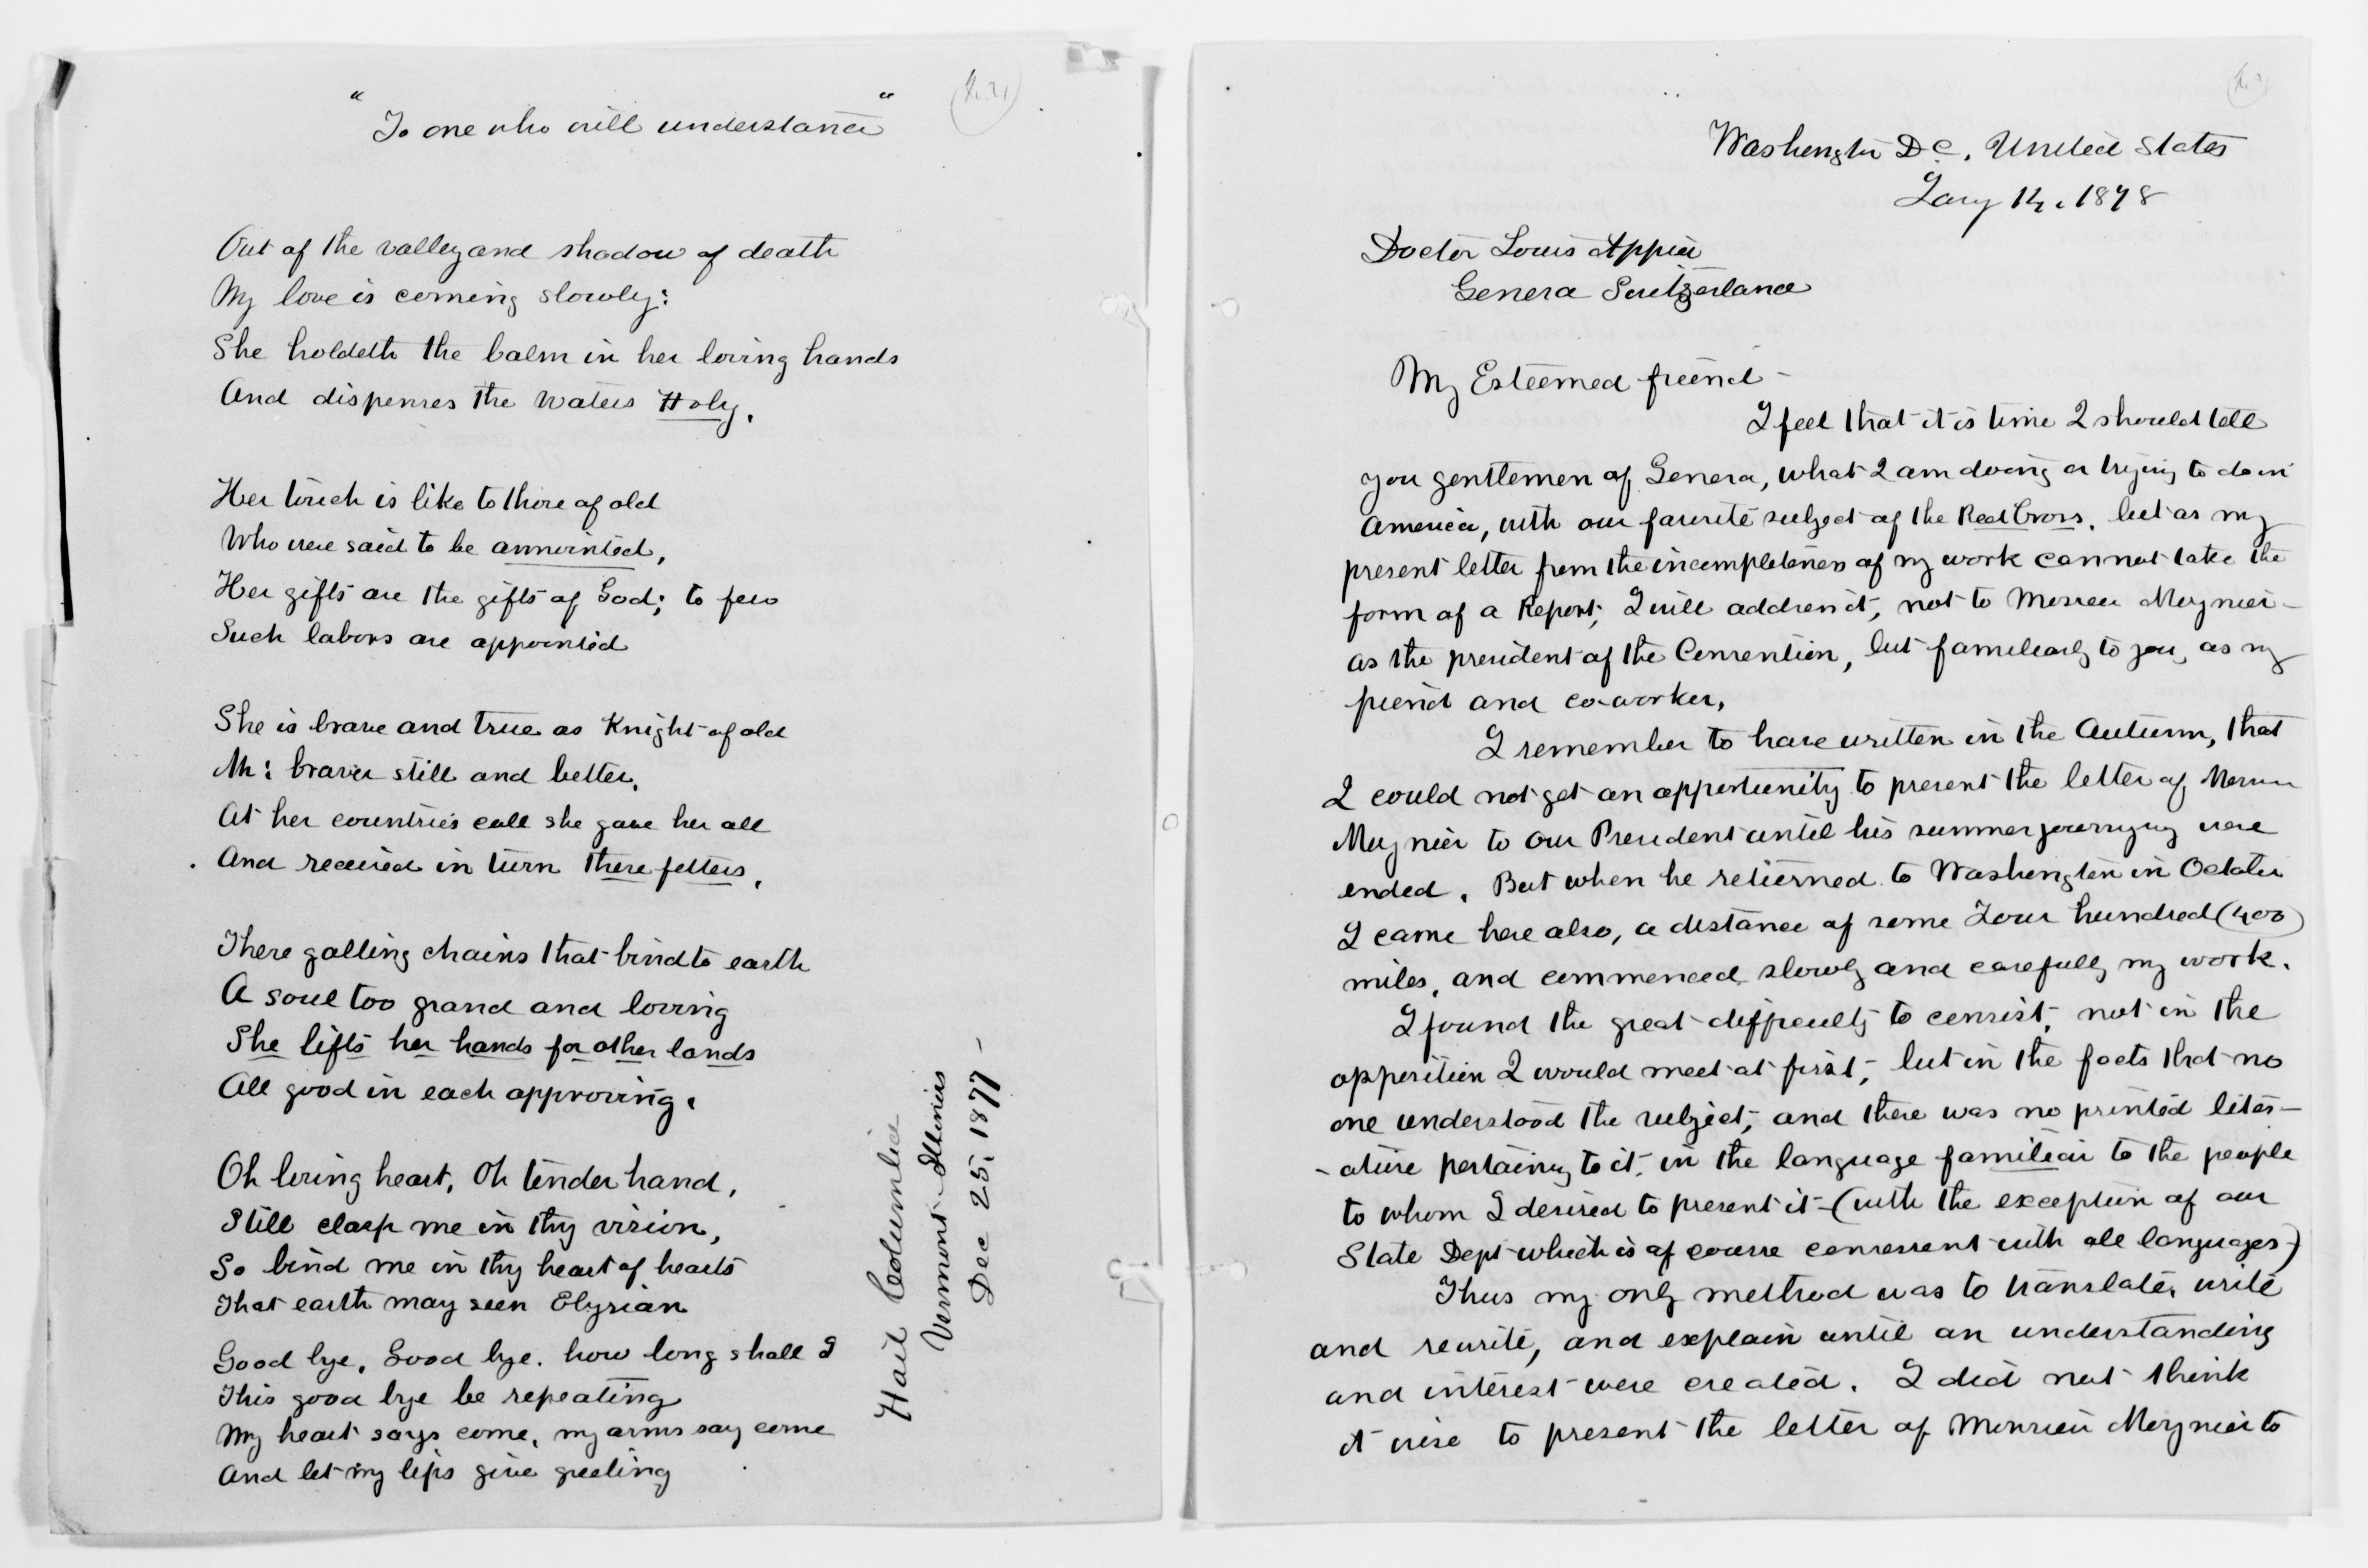 "To one who will understand"
Out of the valley and shadow of death
My love is coming slowly:
She holdeth the balm in her loving hands
And dispenses the waters Holy.
Her touch is like to those of old
Who were said to be annointed,
Her gifts are the gifts of God; to few
Such labors are appointed
She is brave and true as Knight of old
Ah! braver still and better,
At her countries call she gave her all
And received in turn these fetters,
These galling chains that bind to earth
A soul too grand and loving
She lifts her hands for other lands
All good in each approving.
Oh loving heart, Oh tender hand,
Still clasp me in thy vision,
So bind me in thy heart of hearts
That earth may seem Elysian
Good bye, Good bye. how long shall I
This good bye be repeating
My heart says come, my arms say come
And let my lips give greeting
Hail Columbia
Vermont Illinois
Dec 25, 1877 -
Washington D.C. United States
Jany 14. 1878
Doctor Louis Appia
Geneva Switzerland
My Esteemed friend -
I feel that it is time I should tell
you gentlemen of Geneva, what I am doing or trying to do in
America, with our favorite subject of the Red Cross, but as my
present letter from the incompleteness of my work cannot take the
form of a Report, I will address it, not to Monsieur Moynier -
as the president of the Convention, but familiarly to you, as my
friend and co-worker,
I remember to have written in the Autumn, that
I could not get an opportunity to present the letter of
Moynier to our President until his summer journeying were
ended. But when he returned to Washington in October
I came here also, a distance of some Four hundred (400)
miles, and commenced slowly and carefully my work.
I found the great difficulty to consist, not in the
opposition I would meet at first, but in the facts that no
one understood the subject, and there was no printed liter-
-ature pertaining to it, in the language familiar to the people
to whom I desired to present it - (with the exception of our
State Dept which is of course conversent with all languages)
Thus my only method was to translate, write
and rewrite, and explain until an understanding
and interest were created. I did not think
it wise to present the letter of Monsieur Moynier to